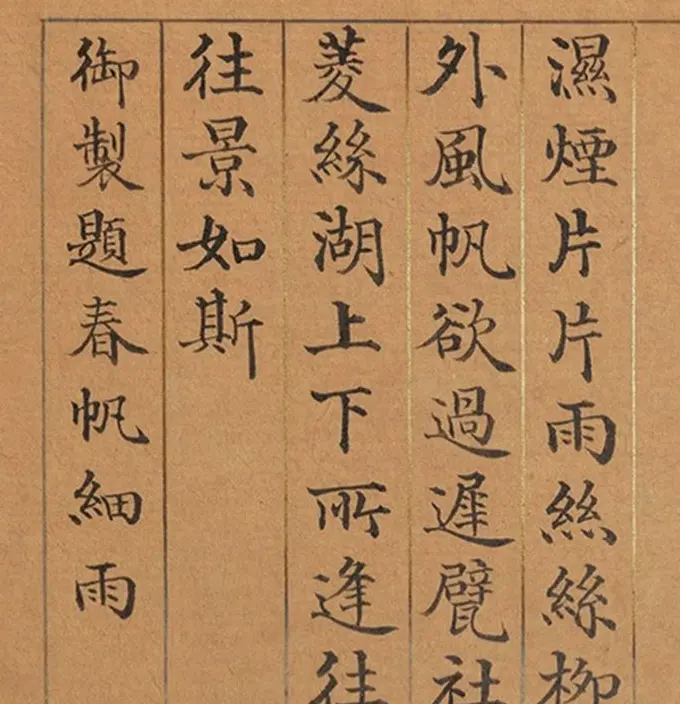 濕煙片片雨絲絲柳
外風帆欲過遲甓社
菱絲湖上下所逢往
往景如斯
御製題春帆細雨